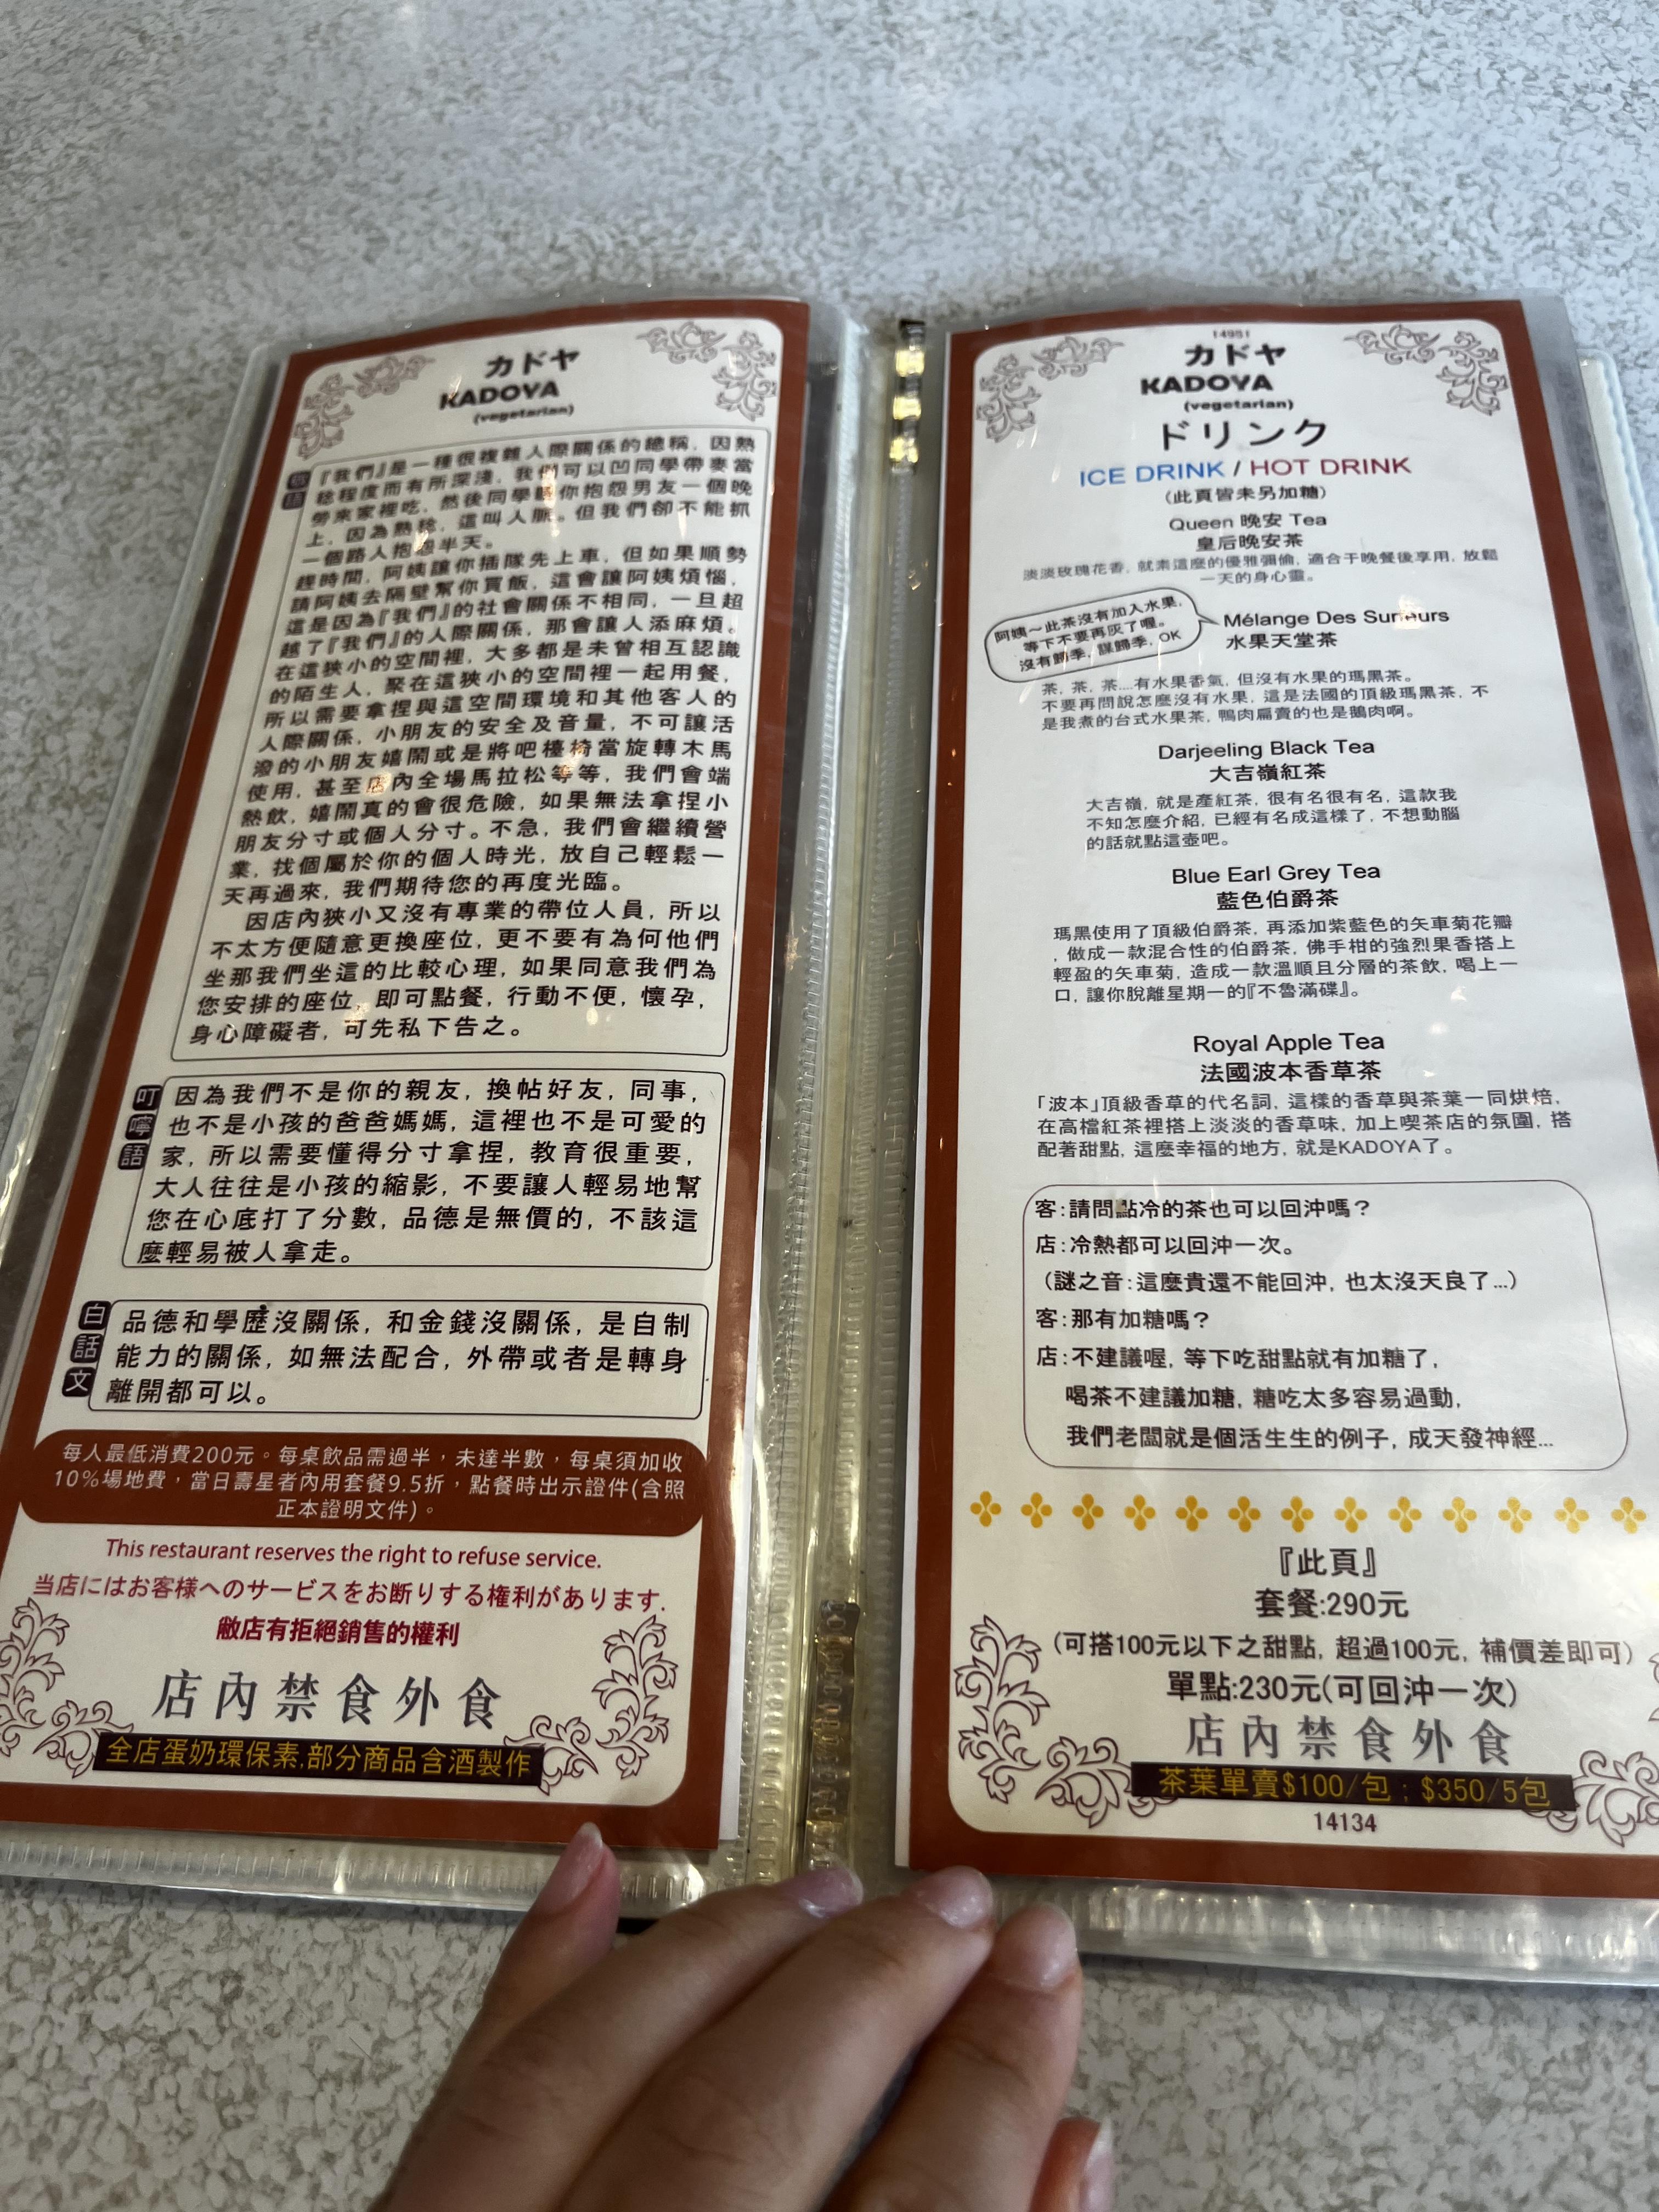 カドヤ
KADOYA
(vegetarian)
『我們』是一種很複雜人際關係的總稱，因熟
稔程度而有所深淺，我們可以凹同學帶麥當
勞來家裡吃，然後同學聽你抱怨男友一個晚
上，因為熟稔，這叫人脈。但我們卻不能抓
一個路人抱怨半天。
趕時間，阿姨讓你插隊先上車，但如果順勢
請阿姨去隔壁幫你買飯，這會讓阿姨煩惱，
這是因為『我們』的社會關係不相同，一旦超
越了『我們』的人際關係，那會讓人添麻煩。
在這狹小的空間裡，大多都是未曾相互認識
的陌生人，聚在這狹小的空間裡一起用餐，
所以需要拿捏與這空間環境和其他客人的
人際關係，小朋友的安全及音量，不可讓活
潑的小朋友嬉鬧或是將吧檯椅當旋轉木馬
使用，甚至店內全場馬拉松等等，我們會端
熱飲，嬉鬧真的會很危險，如果無法拿捏小
朋友分寸或個人分寸。不急，我們會繼續營
業，找個屬於你的個人時光，放自己輕鬆一
天再過來，我們期待您的再度光臨。
因店內狹小又沒有專業的帶位人員，所以
不太方便隨意更換座位，更不要有為何他們
坐那我們坐這的比較心理，如果同意我們為
您安排的座位，即可點餐，行動不便，懷孕，
身心障礙者，可先私下告之。
叮嚀語
因為我們不是你的親友，換帖好友，同事，
也不是小孩的爸爸媽媽，這裡也不是可愛的
家，所以需要懂得分寸拿捏，教育很重要，
大人往往是小孩的縮影，不要讓人輕易地幫
您在心底打了分數，品德是無價的，不該這
麼輕易被人拿走。
白話文
品德和學歷沒關係，和金錢沒關係，是自制
能力的關係，如無法配合，外帶或者是轉身
離開都可以。
每人最低消費200元。每桌飲品需過半，未達半數，每桌須加收
10%場地費，當日壽星者內用套餐9.5折，點餐時出示證件(含照
正本證明文件)。
This restaurant reserves the right to refuse service.
当店にはお客様へのサービスをお断りする権利があります.
敝店有拒絕銷售的權利
店內禁食外食
全店蛋奶環保素,部分商品含酒製作
14951
カドヤ
KADOYA
(vegetarian)
ドリンク
ICE DRINK / HOT DRINK
(此頁皆未另加糖)
Queen 晚安 Tea
皇后晚安茶
淡淡玫瑰花香，就素這麼的優雅彌倫，適合于晚餐後享用，放鬆
一天的身心靈。
阿姨～此茶沒有加入水果，
等下不要再灰了喔。
沒有歸季，謀歸季，OK
Mélange Des
水果天堂茶
茶，茶，茶....有水果香氣，但沒有水果的瑪黑茶。
不要再問說怎麼沒有水果，這是法國的頂級瑪黑茶，不
是我煮的台式水果茶，鴨肉扁賣的也是鵝肉啊。
Darjeeling Black Tea
大吉嶺紅茶
大吉嶺，就是產紅茶，很有名很有名，這款我
不知怎麼介紹，已經有名成這樣了，不想動腦
的話就點這壺吧。
Blue Earl Grey Tea
藍色伯爵茶
瑪黑使用了頂級伯爵茶，再添加紫藍色的矢車菊花瓣
，做成一款混合性的伯爵茶，佛手柑的強烈果香搭上
輕盈的矢車菊，造成一款溫順且分層的茶飲，喝上一
口，讓你脫離星期一的『不魯滿碟』。
Royal Apple Tea
法國波本香草茶
「波本」頂級香草的代名詞，這樣的香草與茶葉一同烘焙，
在高檔紅茶裡搭上淡淡的香草味，加上喫茶店的氛圍，搭
配著甜點，這麼幸福的地方，就是KADOYA了。
客:請問點冷的茶也可以回沖嗎？
店:冷熱都可以回沖一次。
（謎之音:這麼貴還不能回沖，也太沒天良了...）
客:那有加糖嗎？
店:不建議喔，等下吃甜點就有加糖了，
喝茶不建議加糖，糖吃太多容易過動，
我們老闆就是個活生生的例子，成天發神經...
『此頁』
套餐:290元
(可搭100元以下之甜點，超過100元，補價差即可)
單點:230元(可回沖一次)
店內禁食外食
茶葉單賣$100/包；$350/5包
14134